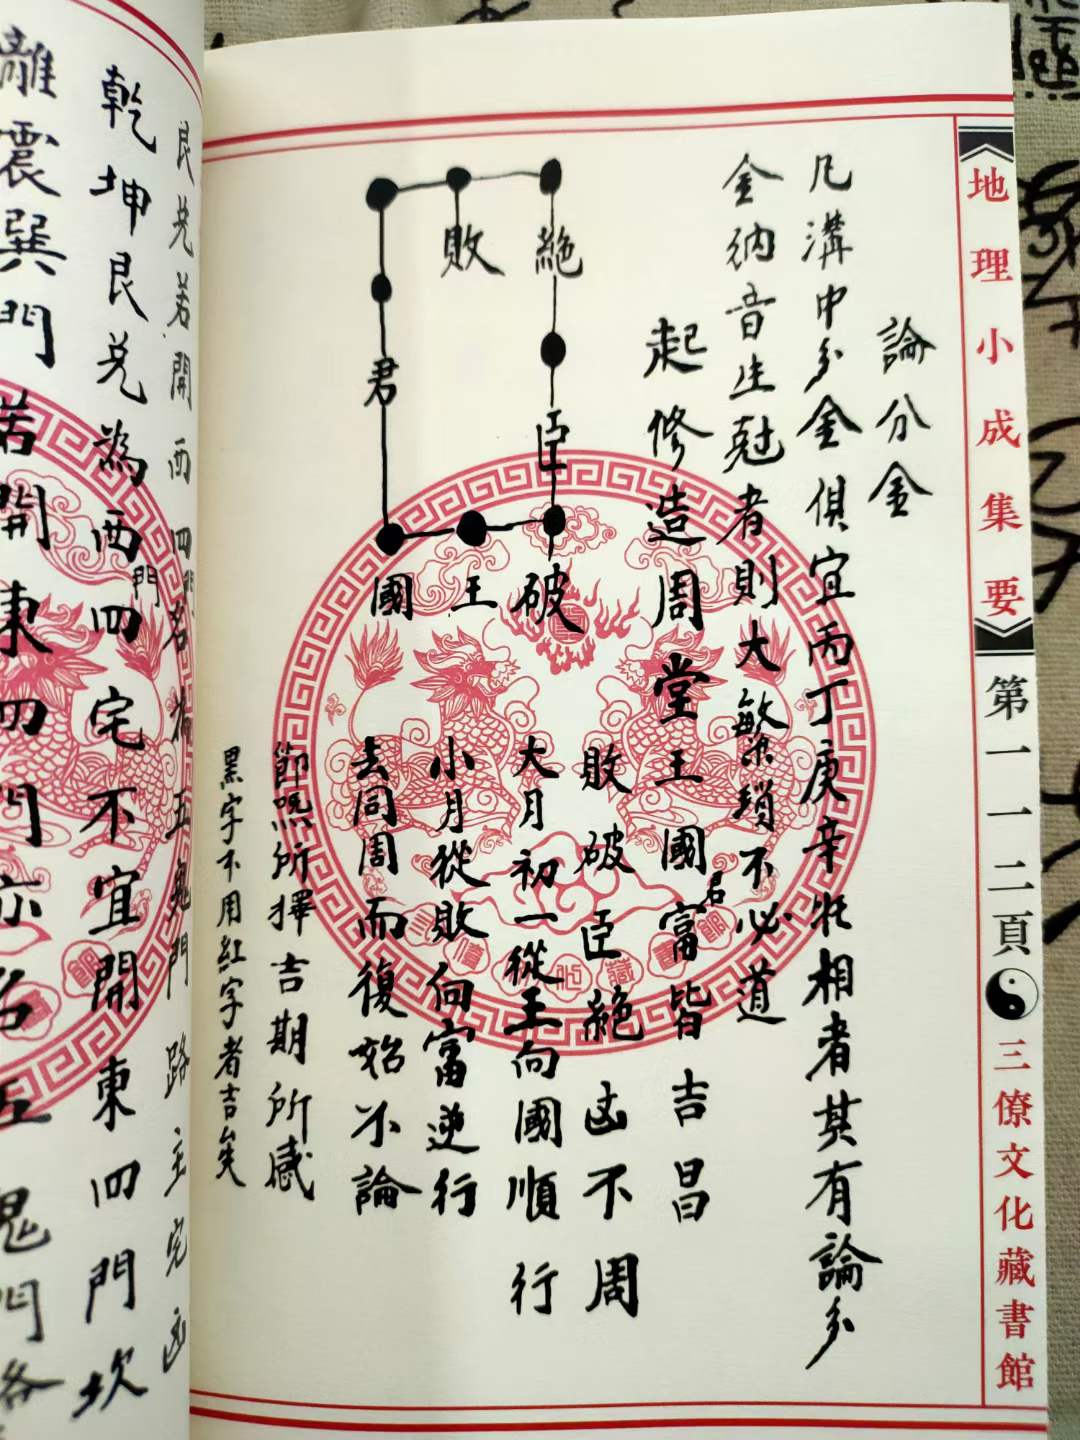 地理小成集要
第一一二頁
三僚文化藏書館
論分金
凡溝中分金俱宜丙丁庚辛旺相者其有論分
金納音生尅者則大繁瑣不必道
起修造周堂王國富皆吉昌
君
敗破臣絕凶不周
大月初一從王向國順行
小月從敗向富逆行
去同周而復始不論
節炁所擇吉期所感
黑字不用紅字者吉矣
絕
敗
君
臣
破
王
國
艮兑若開西四門名為五鬼門路主宅凶
乾坤艮兑為西四宅不宜開東四門坎
門
離震巽門若開東四門亦名五鬼門路